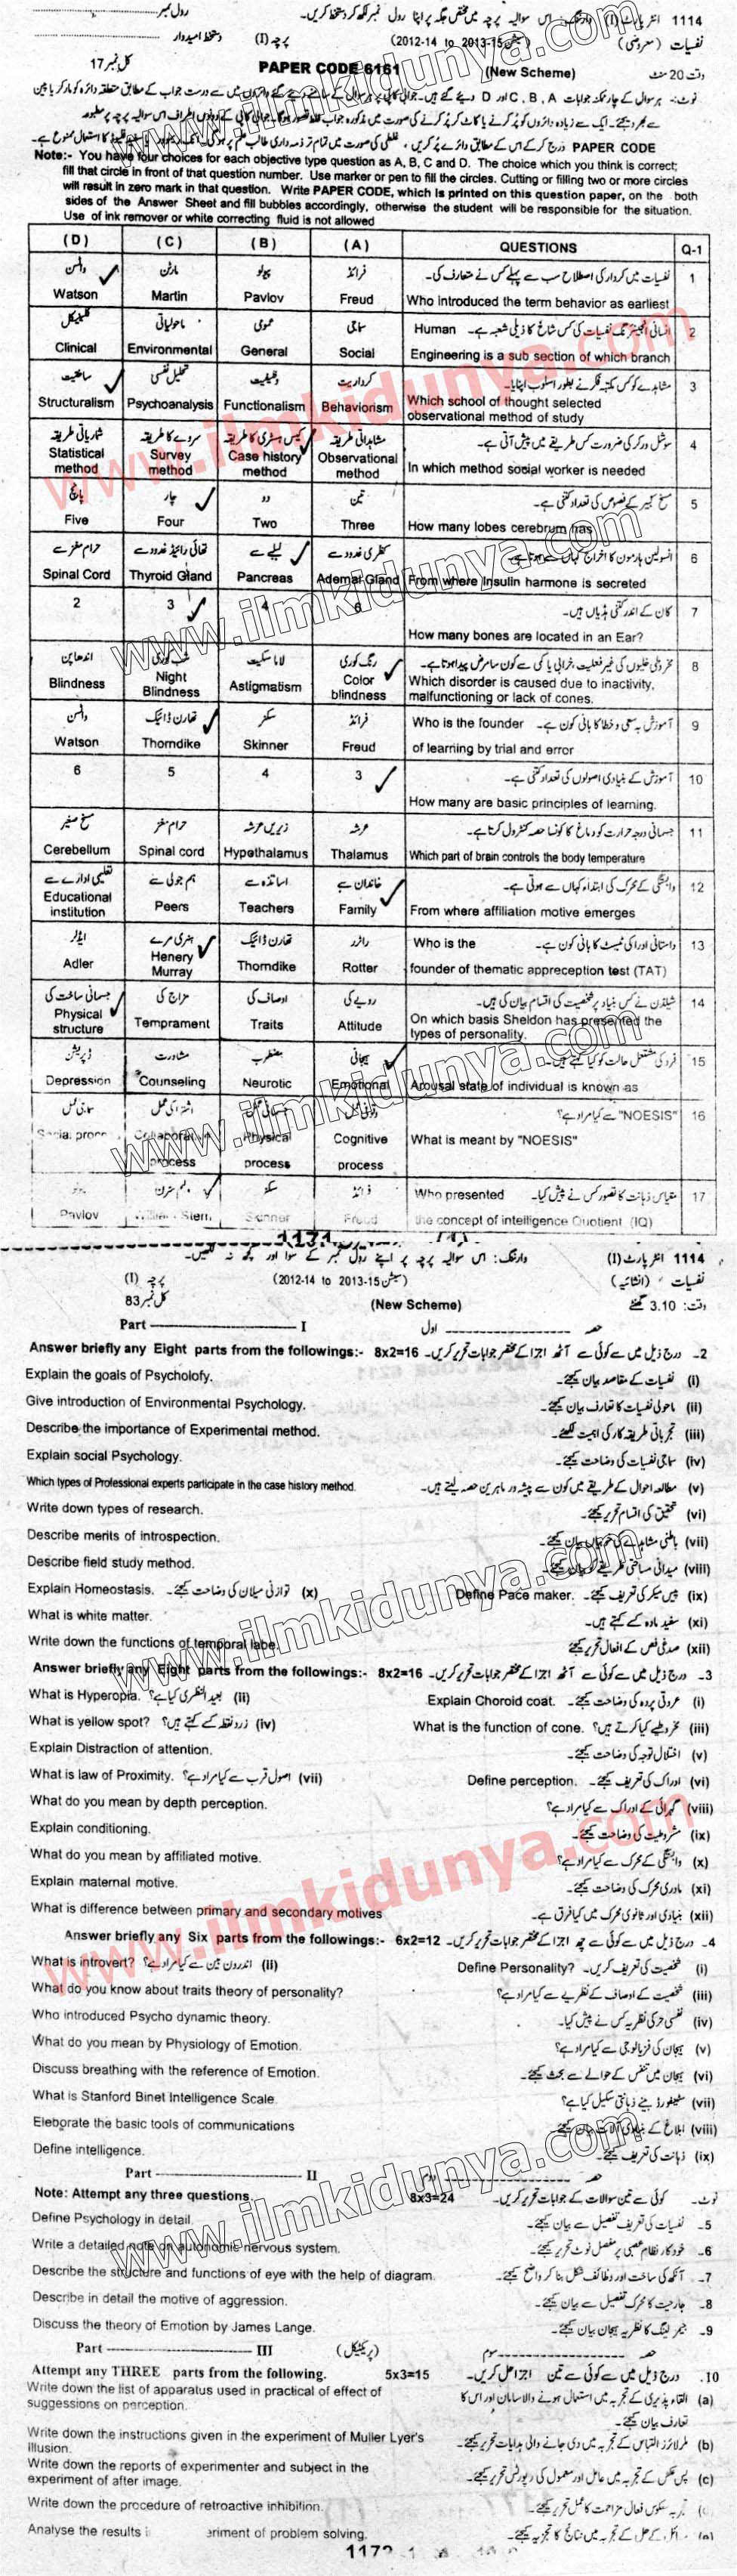 1114 انٹر پارٹ (I) وارننگ: اس سوالیہ پرچہ میں مختص جگہ پر اپنا رول نمبر لکھ کر دستخط کریں۔ رول نمبر
نفسیات (معروضی) (سیشن 2012-14 to 2013-15) پرچہ (I) دستخط امیدوار
وقت 20 منٹ (New Scheme) PAPER CODE 6161 کل نمبر 17
Note:- You have four choices for each objective type question as A, B, C and D. The choice which you think is correct;
fill that circle in front of that question number. Use marker or pen to fill the circles. Cutting or filling two or more circles
will result in zero mark in that question. Write PAPER CODE, which is printed on this question paper, on the both
sides of the Answer Sheet and fill bubbles accordingly, otherwise the student will be responsible for the situation.
Use of ink remover or white correcting fluid is not allowed
(D) (C) (B) (A) QUESTIONS Q-1
واٹسن مارٹن پیولو فرائڈ نفسیات میں کردار کی اصطلاح سب سے پہلے کس نے متعارف کی۔ 1
Watson Martin Pavlov Freud Who introduced the term behavior as earliest
کلینیکل ماحولیاتی عمومی سماجی انسانی انجینئرنگ نفسیات کی کس شاخ کا ذیلی شعبہ ہے۔ Human 2
Clinical Environmental General Social Engineering is a sub section of which branch
ساختیت تحلیل نفسی وظیفیت کرداریت مشاہدے کو کس مکتبہ فکر نے بطور اسلوب اپنایا۔ 3
Structuralism Psychoanalysis Functionalism Behaviorism Which school of thought selected
observational method of study
شماریاتی طریقہ سروے کا طریقہ کیس ہسٹری کا طریقہ مشاہداتی طریقہ سوشل ورکر کی ضرورت کس طریقے میں پیش آتی ہے۔ 4
Statistical method Survey method Case history method Observational method In which method social worker is needed
پانچ چار دو تین مخ کبیر کے نصوص کی تعداد کتنی ہے۔ 5
Five Four Two Three How many lobes cerebrum has
حرام مغز سے تھائی رائیڈ غدود سے لبلبے سے انسولین ہارمون کا اخراج کہاں سے ہوتا ہے۔ 6
Spinal Cord Thyroid Gland Pancreas Ademal Gland From where Insulin harmone is secreted
2 3 4 6 کان کے اندر کتنی ہڈیاں ہیں۔ 7
How many bones are located in an Ear?
اندھا پن شب کوری لا ماسکیت رنگ کوری مخروطی خلیوں کی غیر فعلیت، خرابی یا کمی سے کون سا مرض پیدا ہوتا ہے۔ 8
Blindness Night Blindness Astigmatism Color blindness Which disorder is caused due to inactivity,
malfunctioning or lack of cones.
واٹسن تھارن ڈائیک سکنر فرائڈ آموزش بہ سعی و خطا کا بانی کون ہے۔ Who is the founder 9
Watson Thorndike Skinner Freud of learning by trial and error
6 5 4 3 آموزش کے بنیادی اصولوں کی تعداد کتنی ہے۔ 10
How many are basic principles of learning.
مخ صغیر حرام مغز زیریں عرشہ عرشہ جسمانی درجہ حرارت کو دماغ کا کونسا حصہ کنٹرول کرتا ہے۔ 11
Cerebellum Spinal cord Hypothalamus Thalamus Which part of brain controls the body temperature
تعلیمی ادارے سے ہم جولی سے اساتذہ سے خاندان سے وابستگی کے محرک کی ابتداء کہاں سے ہوتی ہے۔ 12
Educational institution Peers Teachers Family From where affiliation motive emerges
ایڈلر ہنری مرے تھارن ڈائیک راٹرر داستانی ادراک ٹیسٹ کا بانی کون ہے۔ Who is the 13
Adler Henery Murray Thorndike Rotter founder of thematic appreception test (TAT)
جسمانی ساخت کی مزاج کی اوصاف کی رویے کی شیلڈن نے کس بنیاد پر شخصیت کی اقسام بیان کی ہیں۔ 14
Physical structure Temprament Traits Attitude On which basis Sheldon has presented the
types of personality.
ڈپریشن مشاورت مضطرب ہیجانی فرد کی مشتعل حالت کو کیا کہتے ہیں۔ 15
Depression Counseling Neurotic Emotional Arousal state of individual is known as
"NOESIS" سے کیا مراد ہے؟ 16
Social process Collaborative process Physical process Cognitive process What is meant by "NOESIS"
مقیاس ذہانت کا تصور کس نے پیش کیا۔ Who presented 17
Pavlov William Stern Skinner Freud the concept of intelligence Quotient (IQ)
1171
1114 انٹر پارٹ (I) وارننگ: اس سوالیہ پرچہ پر اپنے رول نمبر کے سوا اور کچھ نہ لکھیں۔
نفسیات (انشائیہ) (سیشن 2012-14 to 2013-15) پرچہ (I)
وقت: 3.10 گھنٹے (New Scheme) کل نمبر 83
Part I حصہ اول
Answer briefly any Eight parts from the followings:- 8x2=16 2۔ درج ذیل میں سے کوئی سے آٹھ اجزا کے مختصر جوابات تحریر کریں۔
Explain the goals of Psycholofy. (i) نفسیات کے مقاصد بیان کیجئے۔
Give introduction of Environmental Psychology. (ii) ماحولی نفسیات کا تعارف بیان کیجئے۔
Describe the importance of Experimental method. (iii) تجرباتی طریقہ کار کی اہمیت لکھئے۔
Explain social Psychology. (iv) سماجی نفسیات کی وضاحت کیجئے۔
Which types of Professional experts participate in the case history method. (v) مطالعہ احوال کے طریقے میں کون سے پیشہ ور ماہرین حصہ لیتے ہیں۔
Write down types of research. (vi) تحقیق کی اقسام تحریر کیجئے۔
Describe merits of introspection. (vii) باطنی مشاہدے کی خوبیاں بیان کیجئے۔
Describe field study method. (viii) میدانی مساحتی طریقے کو بیان کیجئے۔
Explain Homeostasis. (x) توازنی میلان کی وضاحت کیجئے۔ Define Pace maker. (ix) پیس میکر کی تعریف کیجئے۔
What is white matter. (xi) سفید مادہ کسے کہتے ہیں۔
Write down the functions of temporal labe. (xii) صدغی نص کے افعال تحریر کیجئے
Answer briefly any Eight parts from the followings:- 8x2=16 3۔ درج ذیل میں سے کوئی سے آٹھ اجزا کے مختصر جوابات تحریر کریں۔
What is Hyperopia. (ii) بعید النظری کیا ہے؟ Explain Choroid coat. (i) عروقی پردہ کی وضاحت کیجئے۔
What is yellow spot? (iv) زرد نقطہ کسے کہتے ہیں؟ What is the function of cone. (iii) مخروطیے کیا کرتے ہیں؟
Explain Distraction of attention. (v) اختلال توجہ کی وضاحت کیجئے۔
What is law of Proximity. (vii) اصول قرب سے کیا مراد ہے؟ Define perception. (vi) ادراک کی تعریف کیجئے۔
What do you mean by depth perception. (viii) گہرائی کے ادراک سے کیا مراد ہے؟
Explain conditioning. (ix) مشروطیت کی وضاحت کیجئے۔
What do you mean by affiliated motive. (x) وابستگی کے محرک سے کیا مراد ہے؟
Explain maternal motive. (xi) مادری محرک کی وضاحت کیجئے۔
What is difference between primary and secondary motives (xii) بنیادی اور ثانوی محرک میں کیا فرق ہے۔
Answer briefly any Six parts from the followings:- 6x2=12 4۔ درج ذیل میں سے کوئی سے چھ اجزا کے مختصر جوابات تحریر کریں۔
What is introvert? (ii) اندرون بین سے کیا مراد ہے؟ Define Personality? (i) شخصیت کی تعریف کریں۔
What do you know about traits theory of personality? (iii) شخصیت کے اوصاف کے نظریے سے کیا مراد ہے؟
Who introduced Psycho dynamic theory. (iv) نفسی حرکی نظریہ کس نے پیش کیا۔
What do you mean by Physiology of Emotion. (v) ہیجان کی فزیالوجی سے کیا مراد ہے؟
Discuss breathing with the reference of Emotion. (vi) ہیجان میں تنفس کے حوالے سے بحث کیجئے۔
What is Stanford Binet Intelligence Scale. (vii) سٹینفورڈ بنے ذہانتی سکیل کیا ہے؟
Eleborate the basic tools of communications (viii) ابلاغ کے بنیادی آلات بیان کیجئے۔
Define intelligence. (ix) ذہانت کی تعریف کیجئے۔
Part II حصہ دوم
Note: Attempt any three questions. 8x3=24 نوٹ۔ کوئی سے تین سوالات کے جوابات تحریر کریں۔
Define Psychology in detail. 5۔ نفسیات کی تعریف تفصیل سے بیان کیجئے۔
Write a detailed note on autonomic nervous system. 6۔ خود کار نظام عصبی پر مفصل نوٹ تحریر کیجئے۔
Describe the structure and functions of eye with the help of diagram. 7۔ آنکھ کی ساخت اور وظائف شکل بنا کر واضح کیجئے۔
Describe in detail the motive of aggression. 8۔ جارحیت کا محرک تفصیل سے بیان کیجئے۔
Discuss the theory of Emotion by James Lange. 9۔ جیمز لینگ کا نظریہ ہیجان بیان کیجئے۔
Part III (پریکٹیکل) حصہ سوم
Attempt any THREE parts from the following. 5x3=15 10۔ درج ذیل میں سے کوئی سے تین اجزا حل کریں۔
Write down the list of apparatus used in practical of effect of (a) القاء پذیری کے تجربہ میں استعمال ہونے والا سامان اور اس کا
suggessions on perception. تعارف بیان کیجئے۔
Write down the instructions given in the experiment of Muller Lyer's (b) مرلائرز التباس کے تجربہ میں دی جانے والی ہدایات تحریر کیجئے۔
Illusion.
Write down the reports of experimenter and subject in the (c) پس عکس کے تجربہ میں عامل اور معمول کی رپورٹس تحریر کیجئے۔
experiment of after image.
Write down the procedure of retroactive inhibition. تجربہ معکوس فعال مزاحمت کا عمل تحریر کیجئے۔
Analyse the results eriment of problem solving. مسائل کے حل کے تجربہ میں نتائج کا تجزیہ کیجئے۔
www.ilmkidunya.com